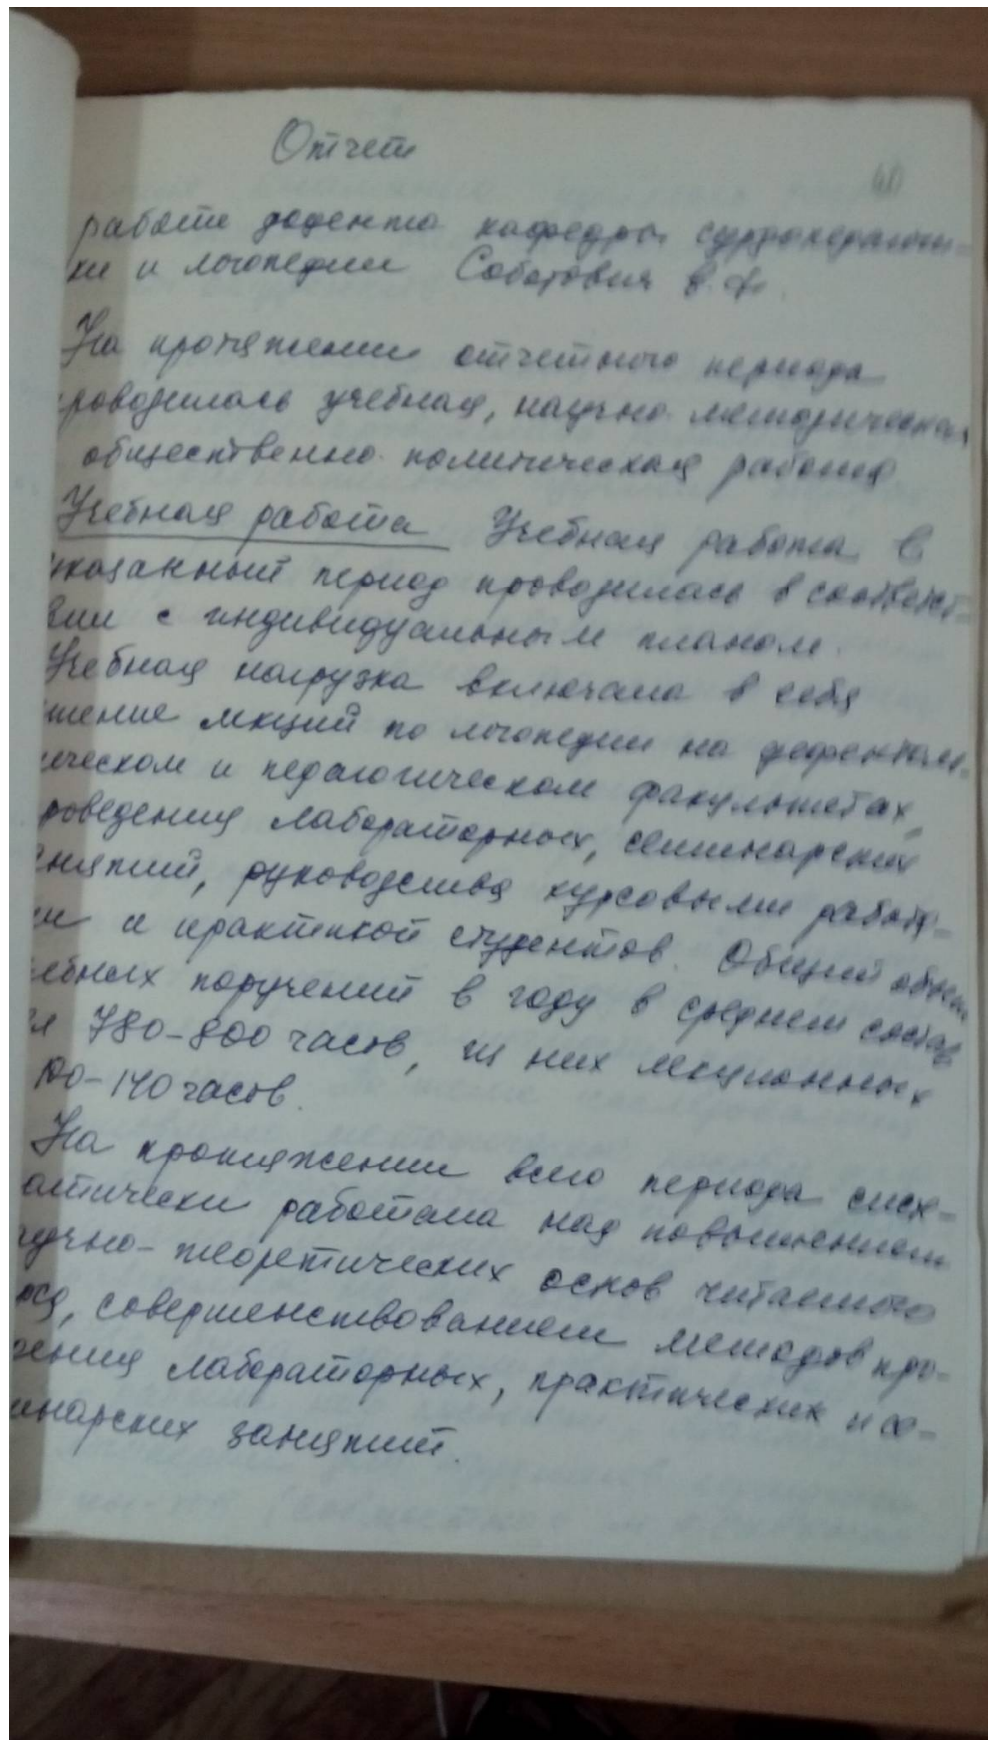 Отчет
40
работе доцента кафедры сурдопедагоги-
ки и логопедии Соботович Е.Ф.
На протяжении отчетного периода
роводилась учебная, научно-методическая
общественно-политическая работа
Учебная работа Учебная работа в
указанный период проводилась в соответст-
вии с индивидуальным планом.
Учебная нагрузка включала в себя
чтение лекций по логопедии на дефектоло-
ическом и педагогическом факультетах,
роведения лабораторных, семинарских
анятий, руководства курсовыми работа-
ми и практикой студентов. Общий объем
чебных поручений в году в среднем состав
ил 780-800 часов, из них лекционных
100-140 часов.
На протяжении всего периода сист-
матически работала над повышением
аучно-теоретических основ читаемого
рса, совершенствованием методов про-
дения лабораторных, практических и се-
инарских занятий.